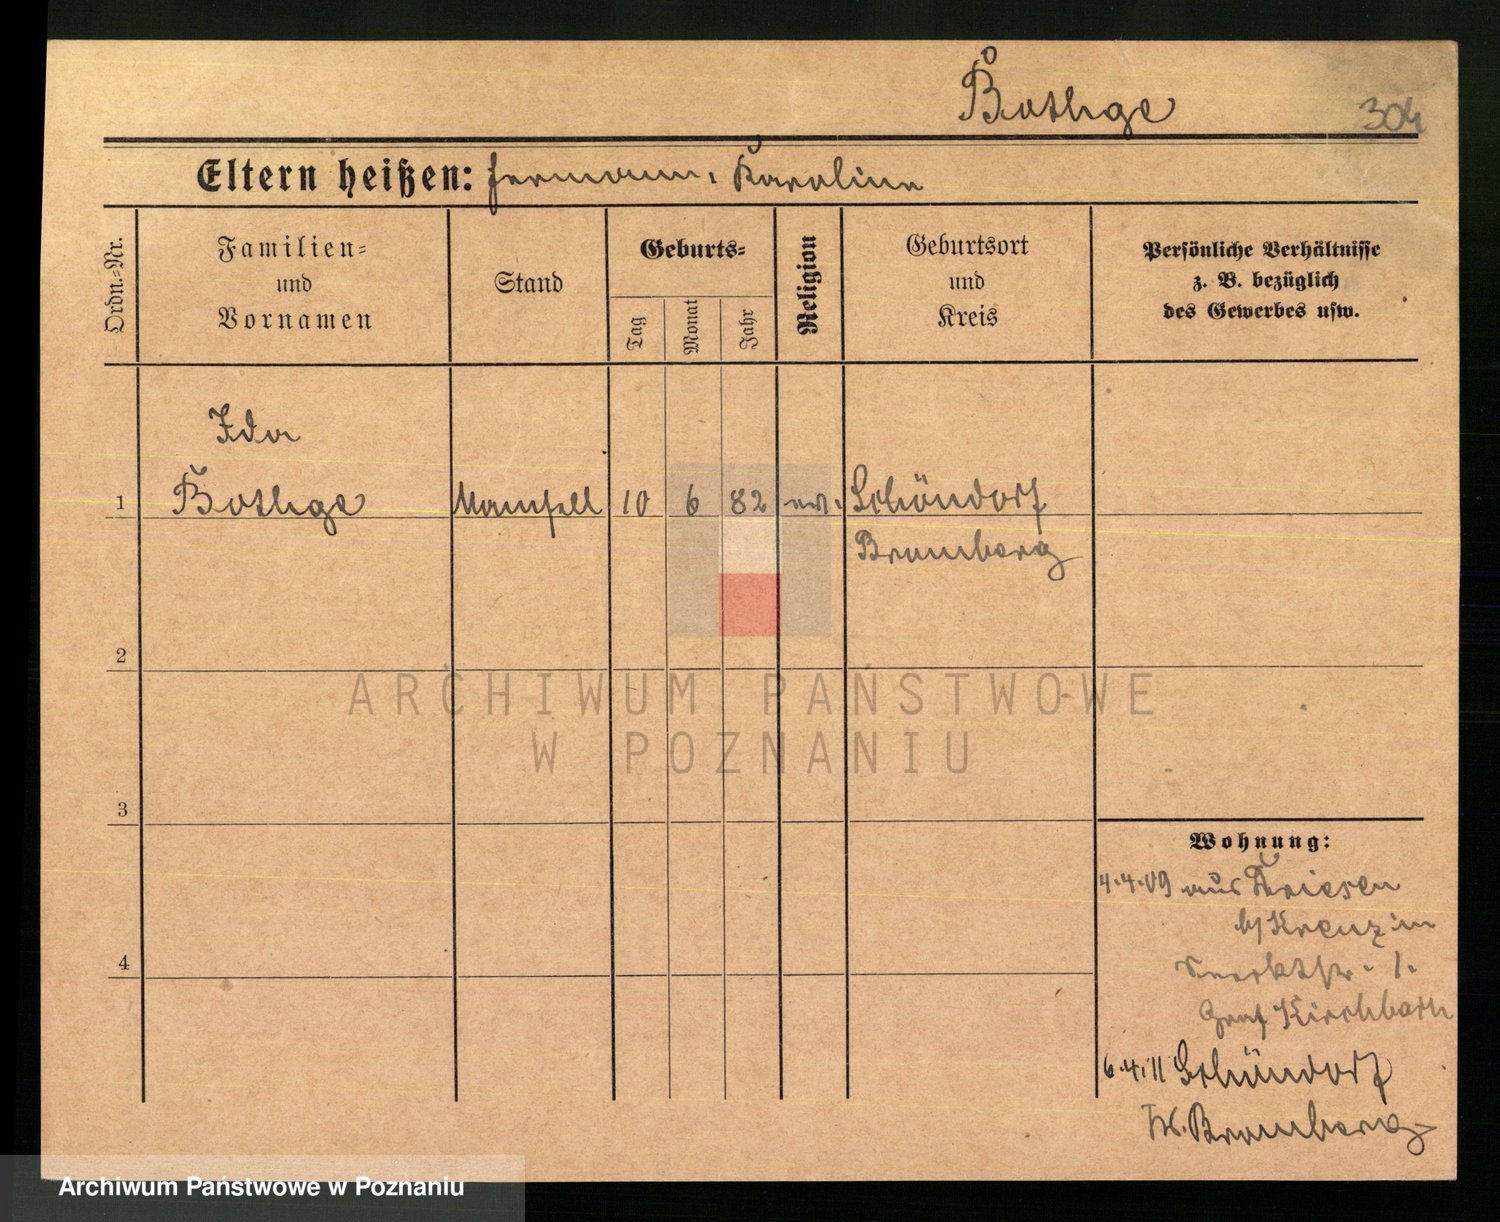 Bothge
304
Eltern heißen: Hermann, Karoline
Ordn.=Nr.
Familien=
und
Vornamen
Stand
Geburts=
Tag
Monat
Jahr
Religion
Geburtsort
und
Kreis
Persönliche Verhältnisse
z. B. bezüglich
des Gewerbes usw.
Ida
1 Bothge Mamsell 10 6 82 ev. Schöndorf
Bromberg
2
ARCHIWUM PAŃSTWOWE
W POZNANIU
3
4
Wohnung:
4.4.09 aus
b/ Kreuz in
1.
Graf Kirchbach
6.4.11 Schöndorf
Kr. Bromberg
Archiwum Państwowe w Poznaniu